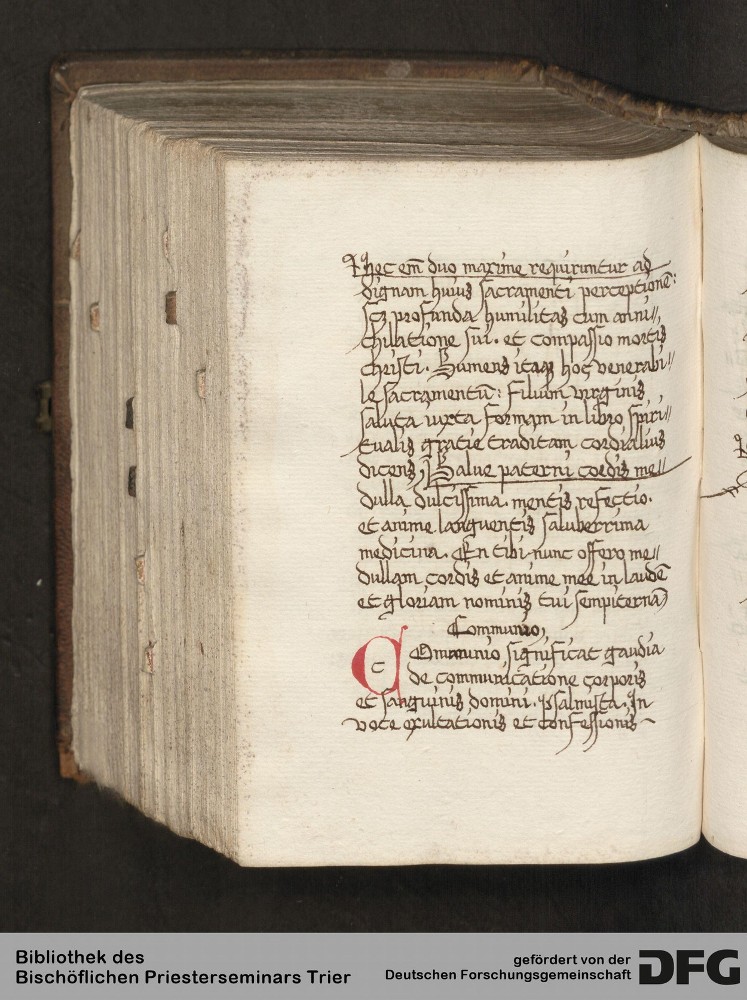 Hec em̄ duo maxime requiruntur ad
dignam huius sacramenti perceptionē:
scꝫ profunda humilitas cum anni〃
chilatione sui. et compassio mortis
christi. Sumens itaqꝫ hoc venerabi〃
le sacramentū: filium virginis
saluta iuxta formam in libro spiri〃
tualis gratie traditam cordialius
dicens, Salue paterni cordis me〃
dulla dulcissima. mentis refectio.
et anime languentis saluberrima
medicina. En tibi nunc offero me〃
dullam cordis et anime mee in laudē
et gloriam nominis tui sempiternā,
Communio,
C
COmmunio significat gaudia
de communicatione corporis
et sanguinis domini. Psalmista. In
voce exultationis et confessionis
Bibliothek des
Bischöflichen Priesterseminars Trier
gefördert von der
Deutschen Forschungsgemeinschaft
DFG